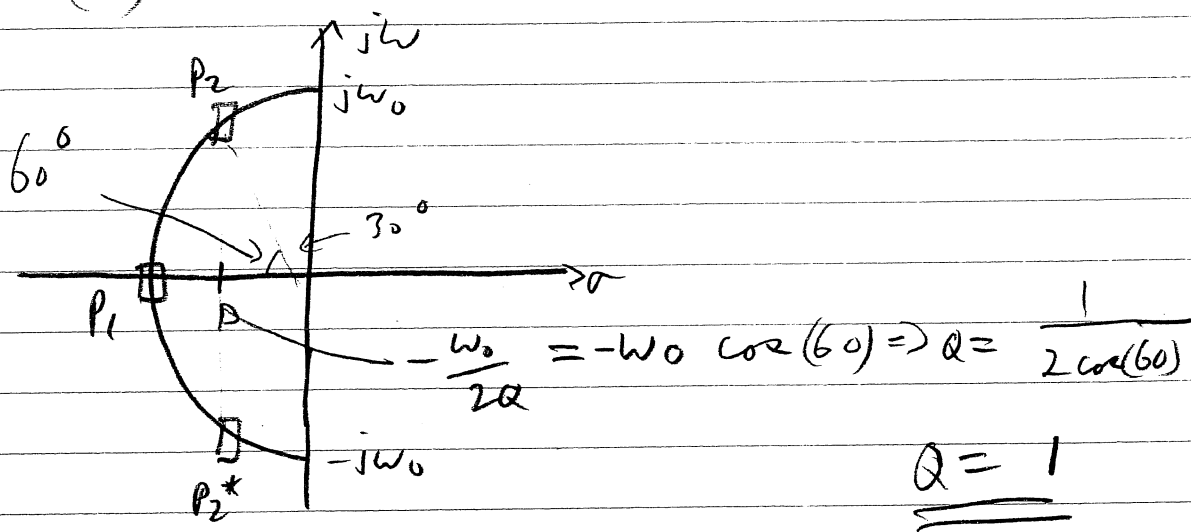 jω
P₂
jω₀
60°
30°
σ
P₁
-ω₀/2Q = -ω₀ cos(60) => Q = 1/2cos(60)
-jω₀
Q = 1
P₂*